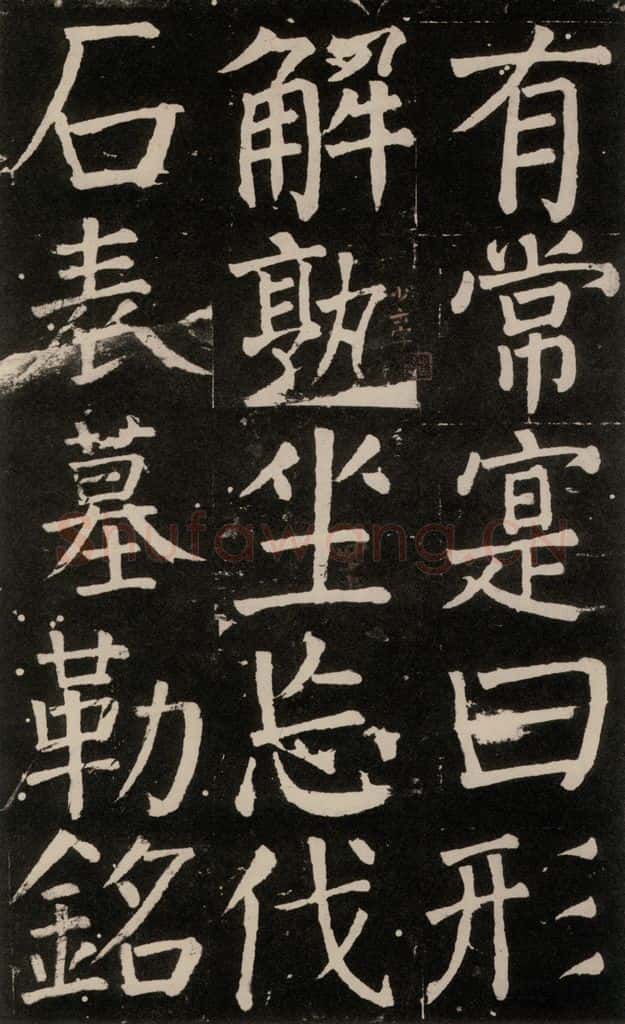 有常寔曰形
解孰坐忘伐
石表墓勒銘
Shufawang.CN